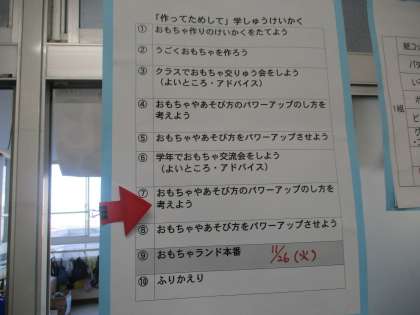 「作ってためして」学しゅうけいかく
① おもちゃ作りのけいかくをたてよう
② うごくおもちゃを作ろう
③ クラスでおもちゃ交りゅう会をしよう
（よいところ・アドバイス）
④ おもちゃやあそび方のパワーアップのし方を
考えよう
⑤ おもちゃやあそび方をパワーアップさせよう
⑥ 学年でおもちゃ交流会をしよう
（よいところ・アドバイス）
⑦ おもちゃやあそび方のパワーアップのし方を
考えよう
⑧ おもちゃやあそび方をパワーアップさせよう
⑨ おもちゃランド本番 11/26（火）
⑩ ふりかえり